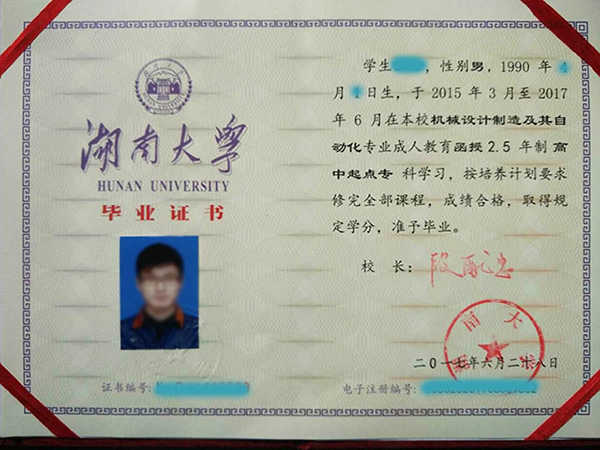 湖南大学
HUNAN UNIVERSITY
毕业证书
证书编号:
学生 ,性别男,1990 年
月 日生,于 2015 年 3 月至 2017
年 6 月在本校机械设计制造及其自
动化专业成人教育函授 2.5 年制 高
中起点专 科学习,按培养计划要求
修完全部课程,成绩合格,取得规
定学分,准予毕业。
校 长:
南大
二〇一七年六月二十八日
电子注册编号: